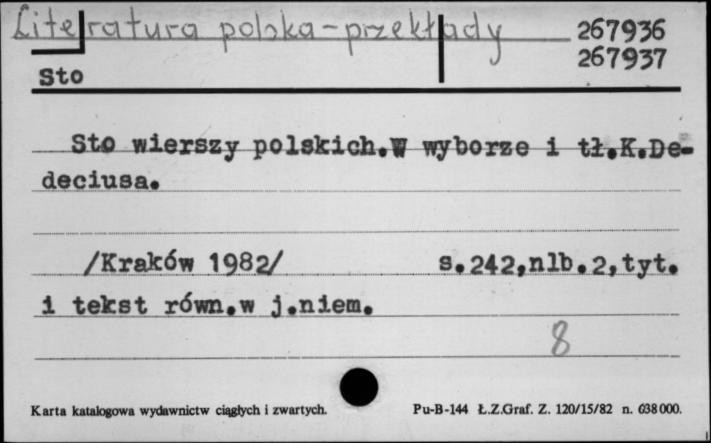 Literatura polska - przekłady
267936
267937
Sto
Sto wierszy polskich.W wyborze i tł.K.De-
deciusa.
/Kraków 1982/ s.242,nlb.2,tyt.
i tekst równ.w j.niem.
8
Karta katalogowa wydawnictw ciągłych i zwartych. Pu-B-144 Ł.Z.Graf. Z. 120/15/82 n. 638000.